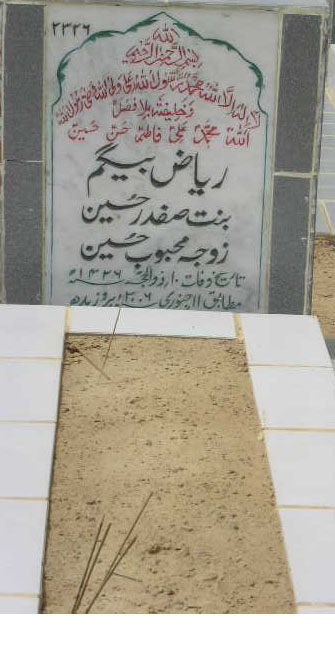 ۲۳۲۶
الله
بسم الله الرحمن الرحیم
لا الہ الا اللہ محمد رسول اللہ علی ولی اللہ وصی رسول اللہ
وخلیفتہ بلا فصل
اللہ محمد علی فاطمہ حسن حسین
ریاض بیگم
بنت صفدر حسین
زوجہ محبوب حسین
تاریخ وفات ۱۰ ذوالحجہ ۱۴۲۶ھ
مطابق ۱۱ جنوری ۲۰۰۶ بروز بدھ